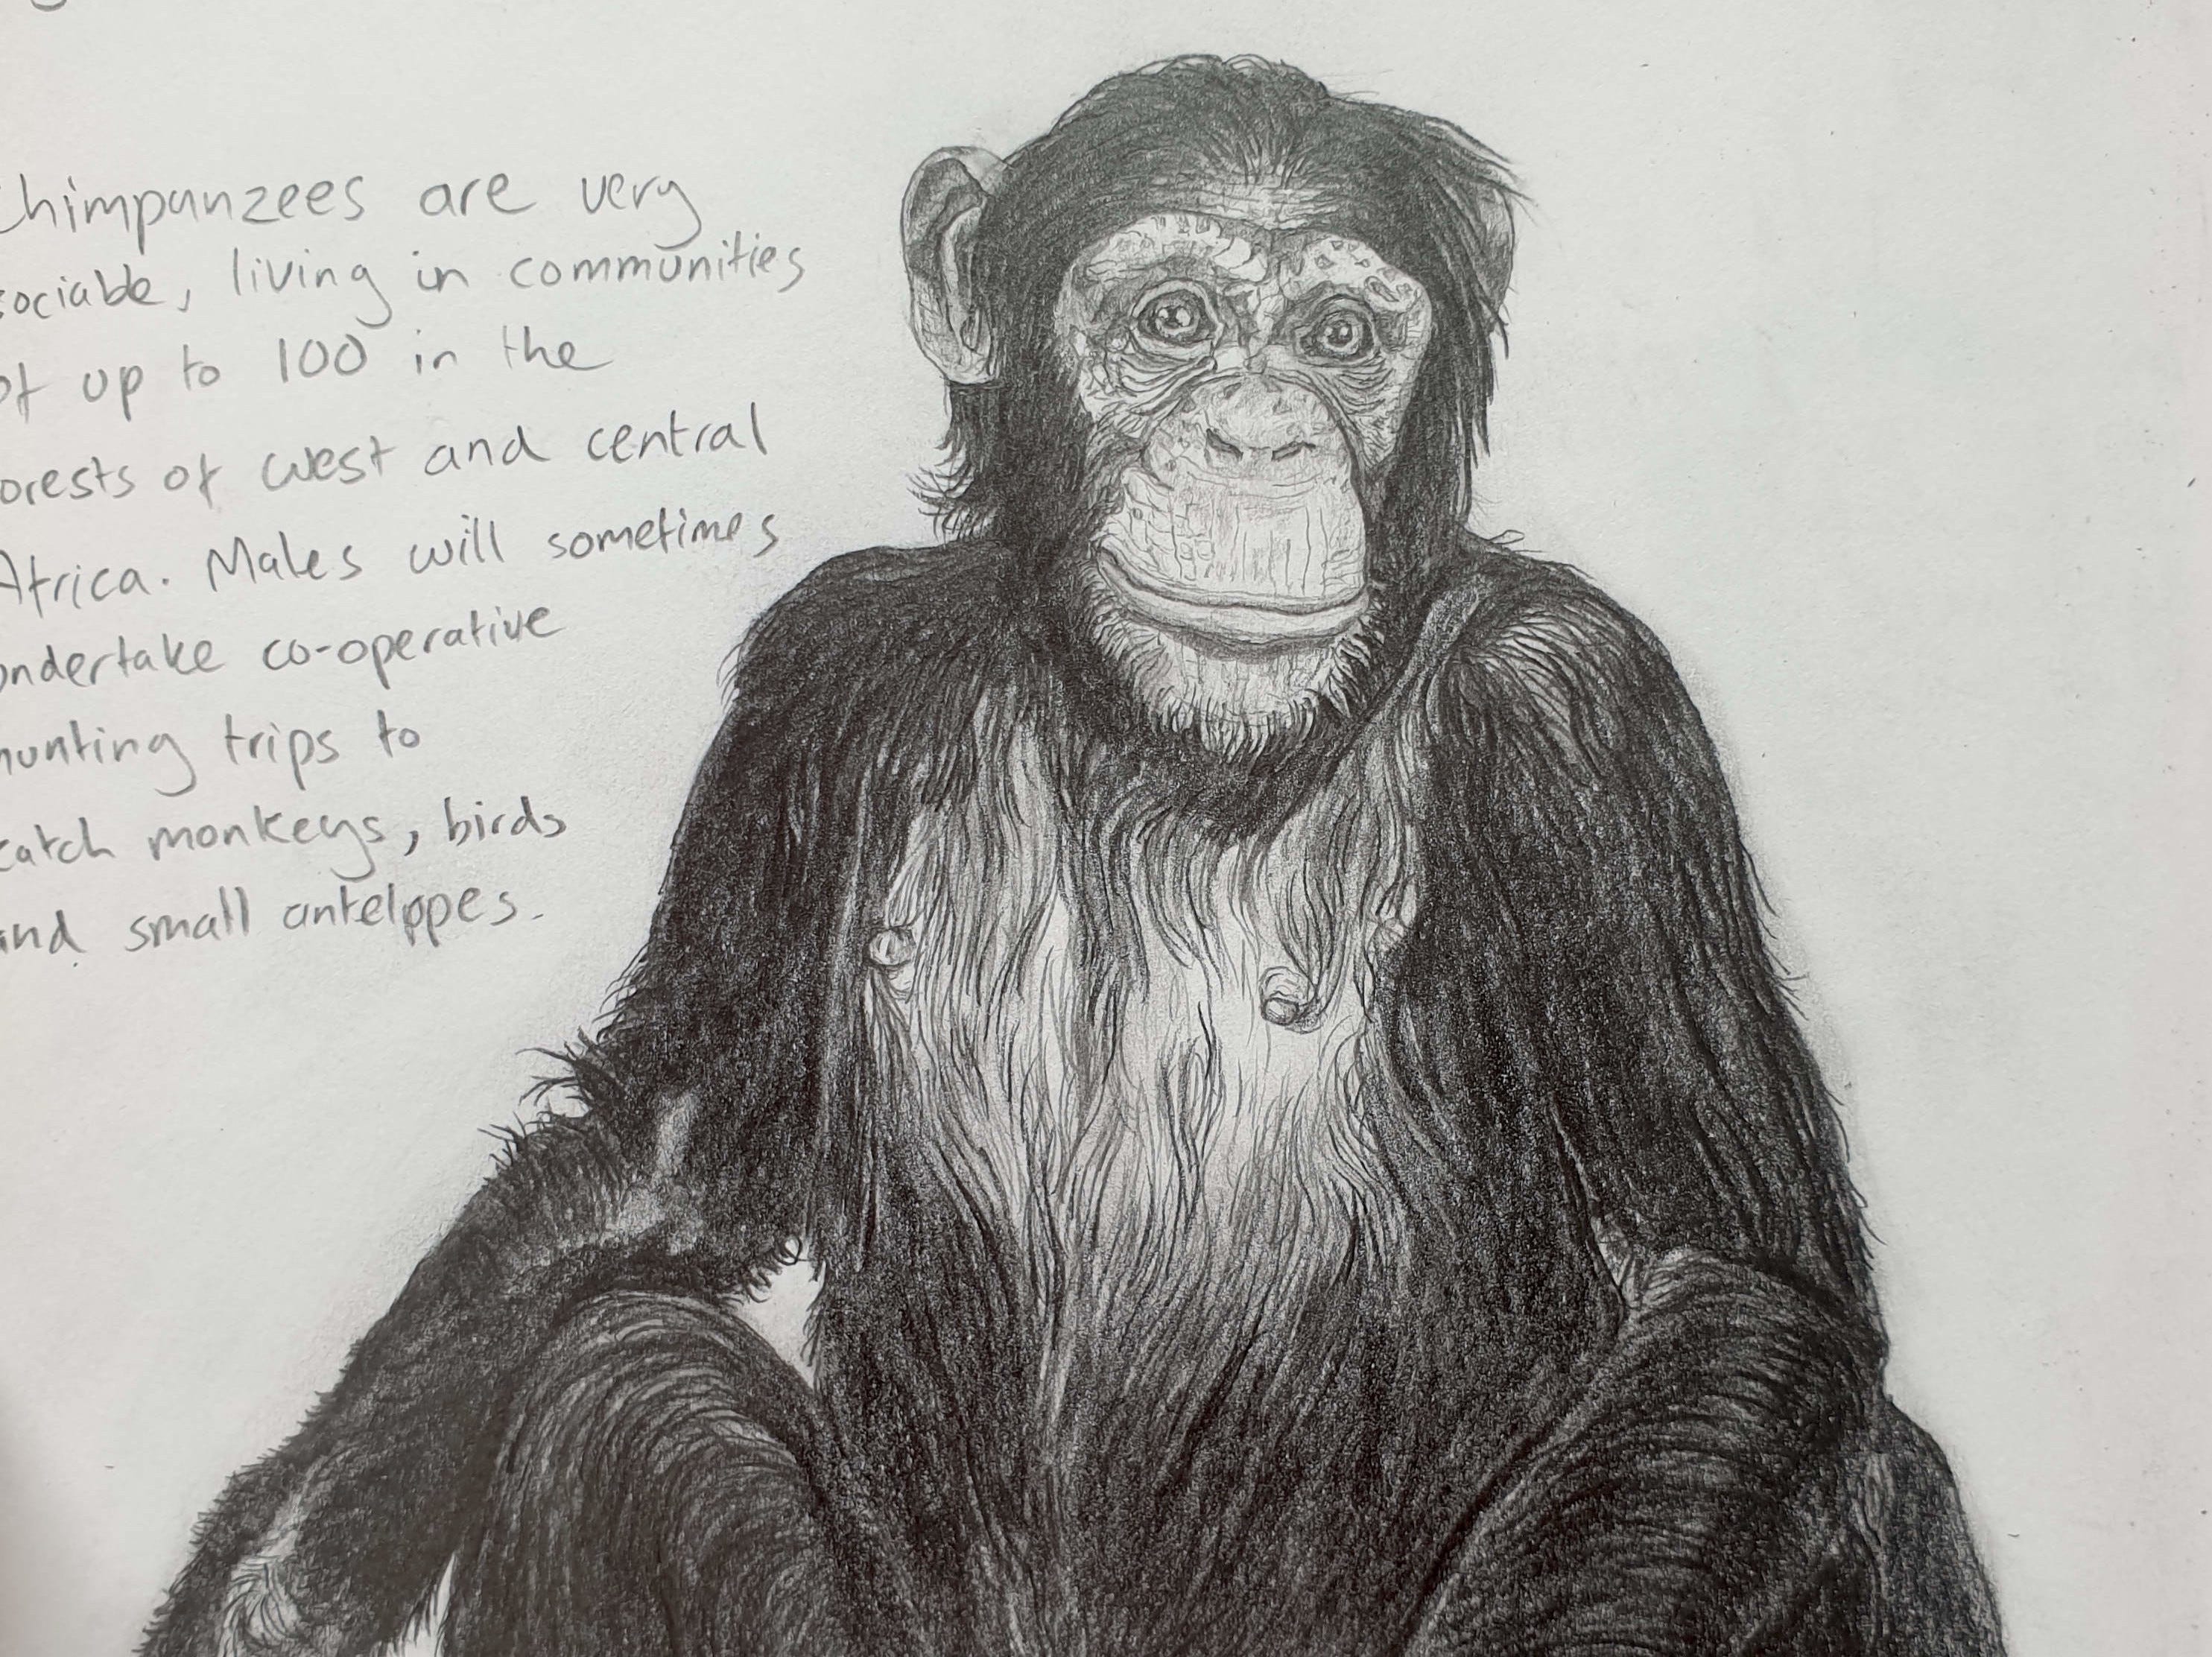 Chimpanzees are very
sociable, living in communities
of up to 100 in the
forests of west and central
Africa. Males will sometimes
undertake co-operative
hunting trips to
catch monkeys, birds
and small antelopes.